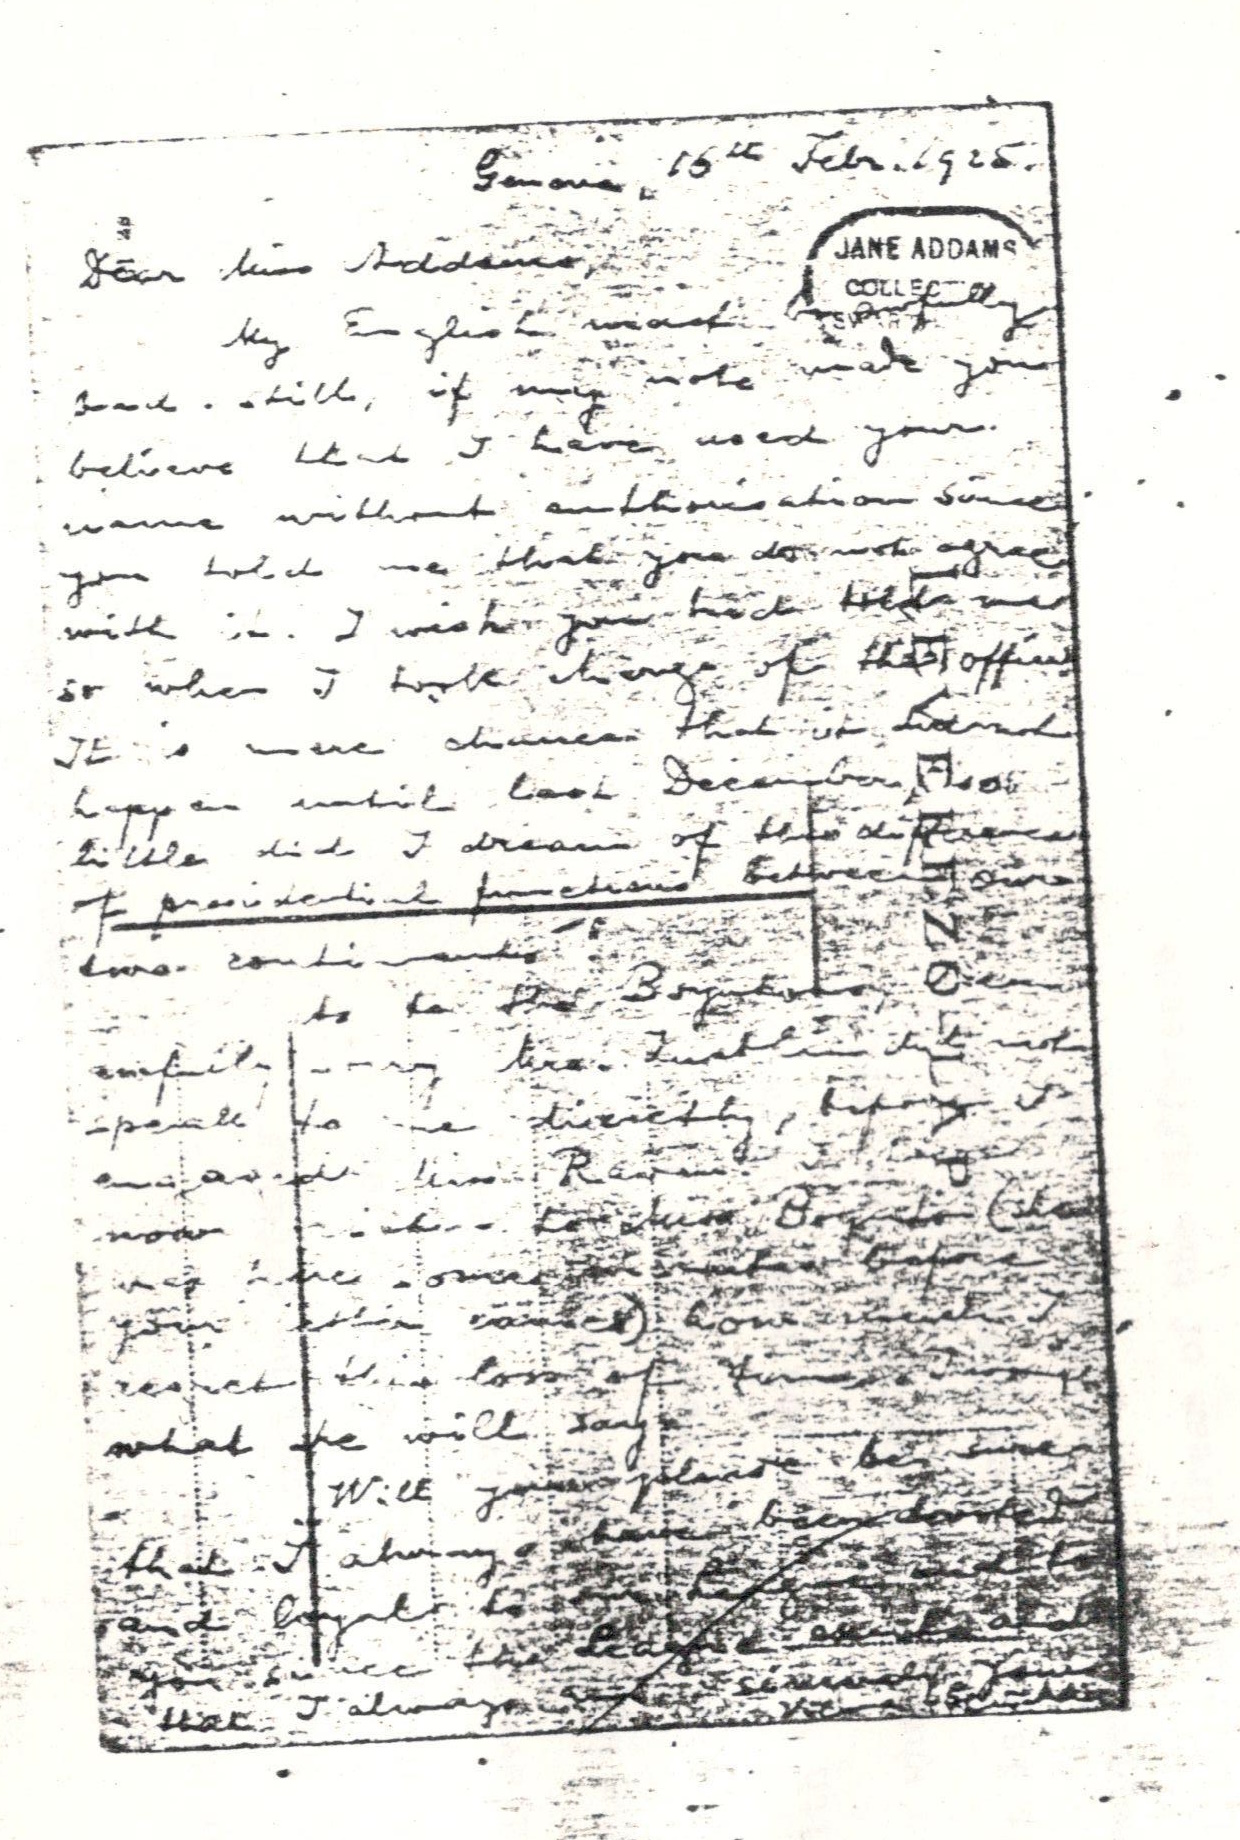 Geneva, 16th Febr. 1925.
Dear Miss Addams,
JANE ADDAMS
My English must be awfully
bad still, if my note made you
believe that I have used your
name without authorisation since
you told me that you do not agree
with it. I wish you had told me
so when I took charge of the office
It is mere chance that it did not
happen until last December, so
little did I dream of this difference
of presidential functions between our
two continents
to the Boyntons, I am
awfully sorry Mrs. did not
speak to me directly,
Miss
now to Miss Boynton (she
was here some minutes before
your letter came) how much I
regret this loss of
what he will say.
Will you please be sure
that I always have been devoted
and loyal to our League and to
you since the League exists and
that I always am sincerely yours